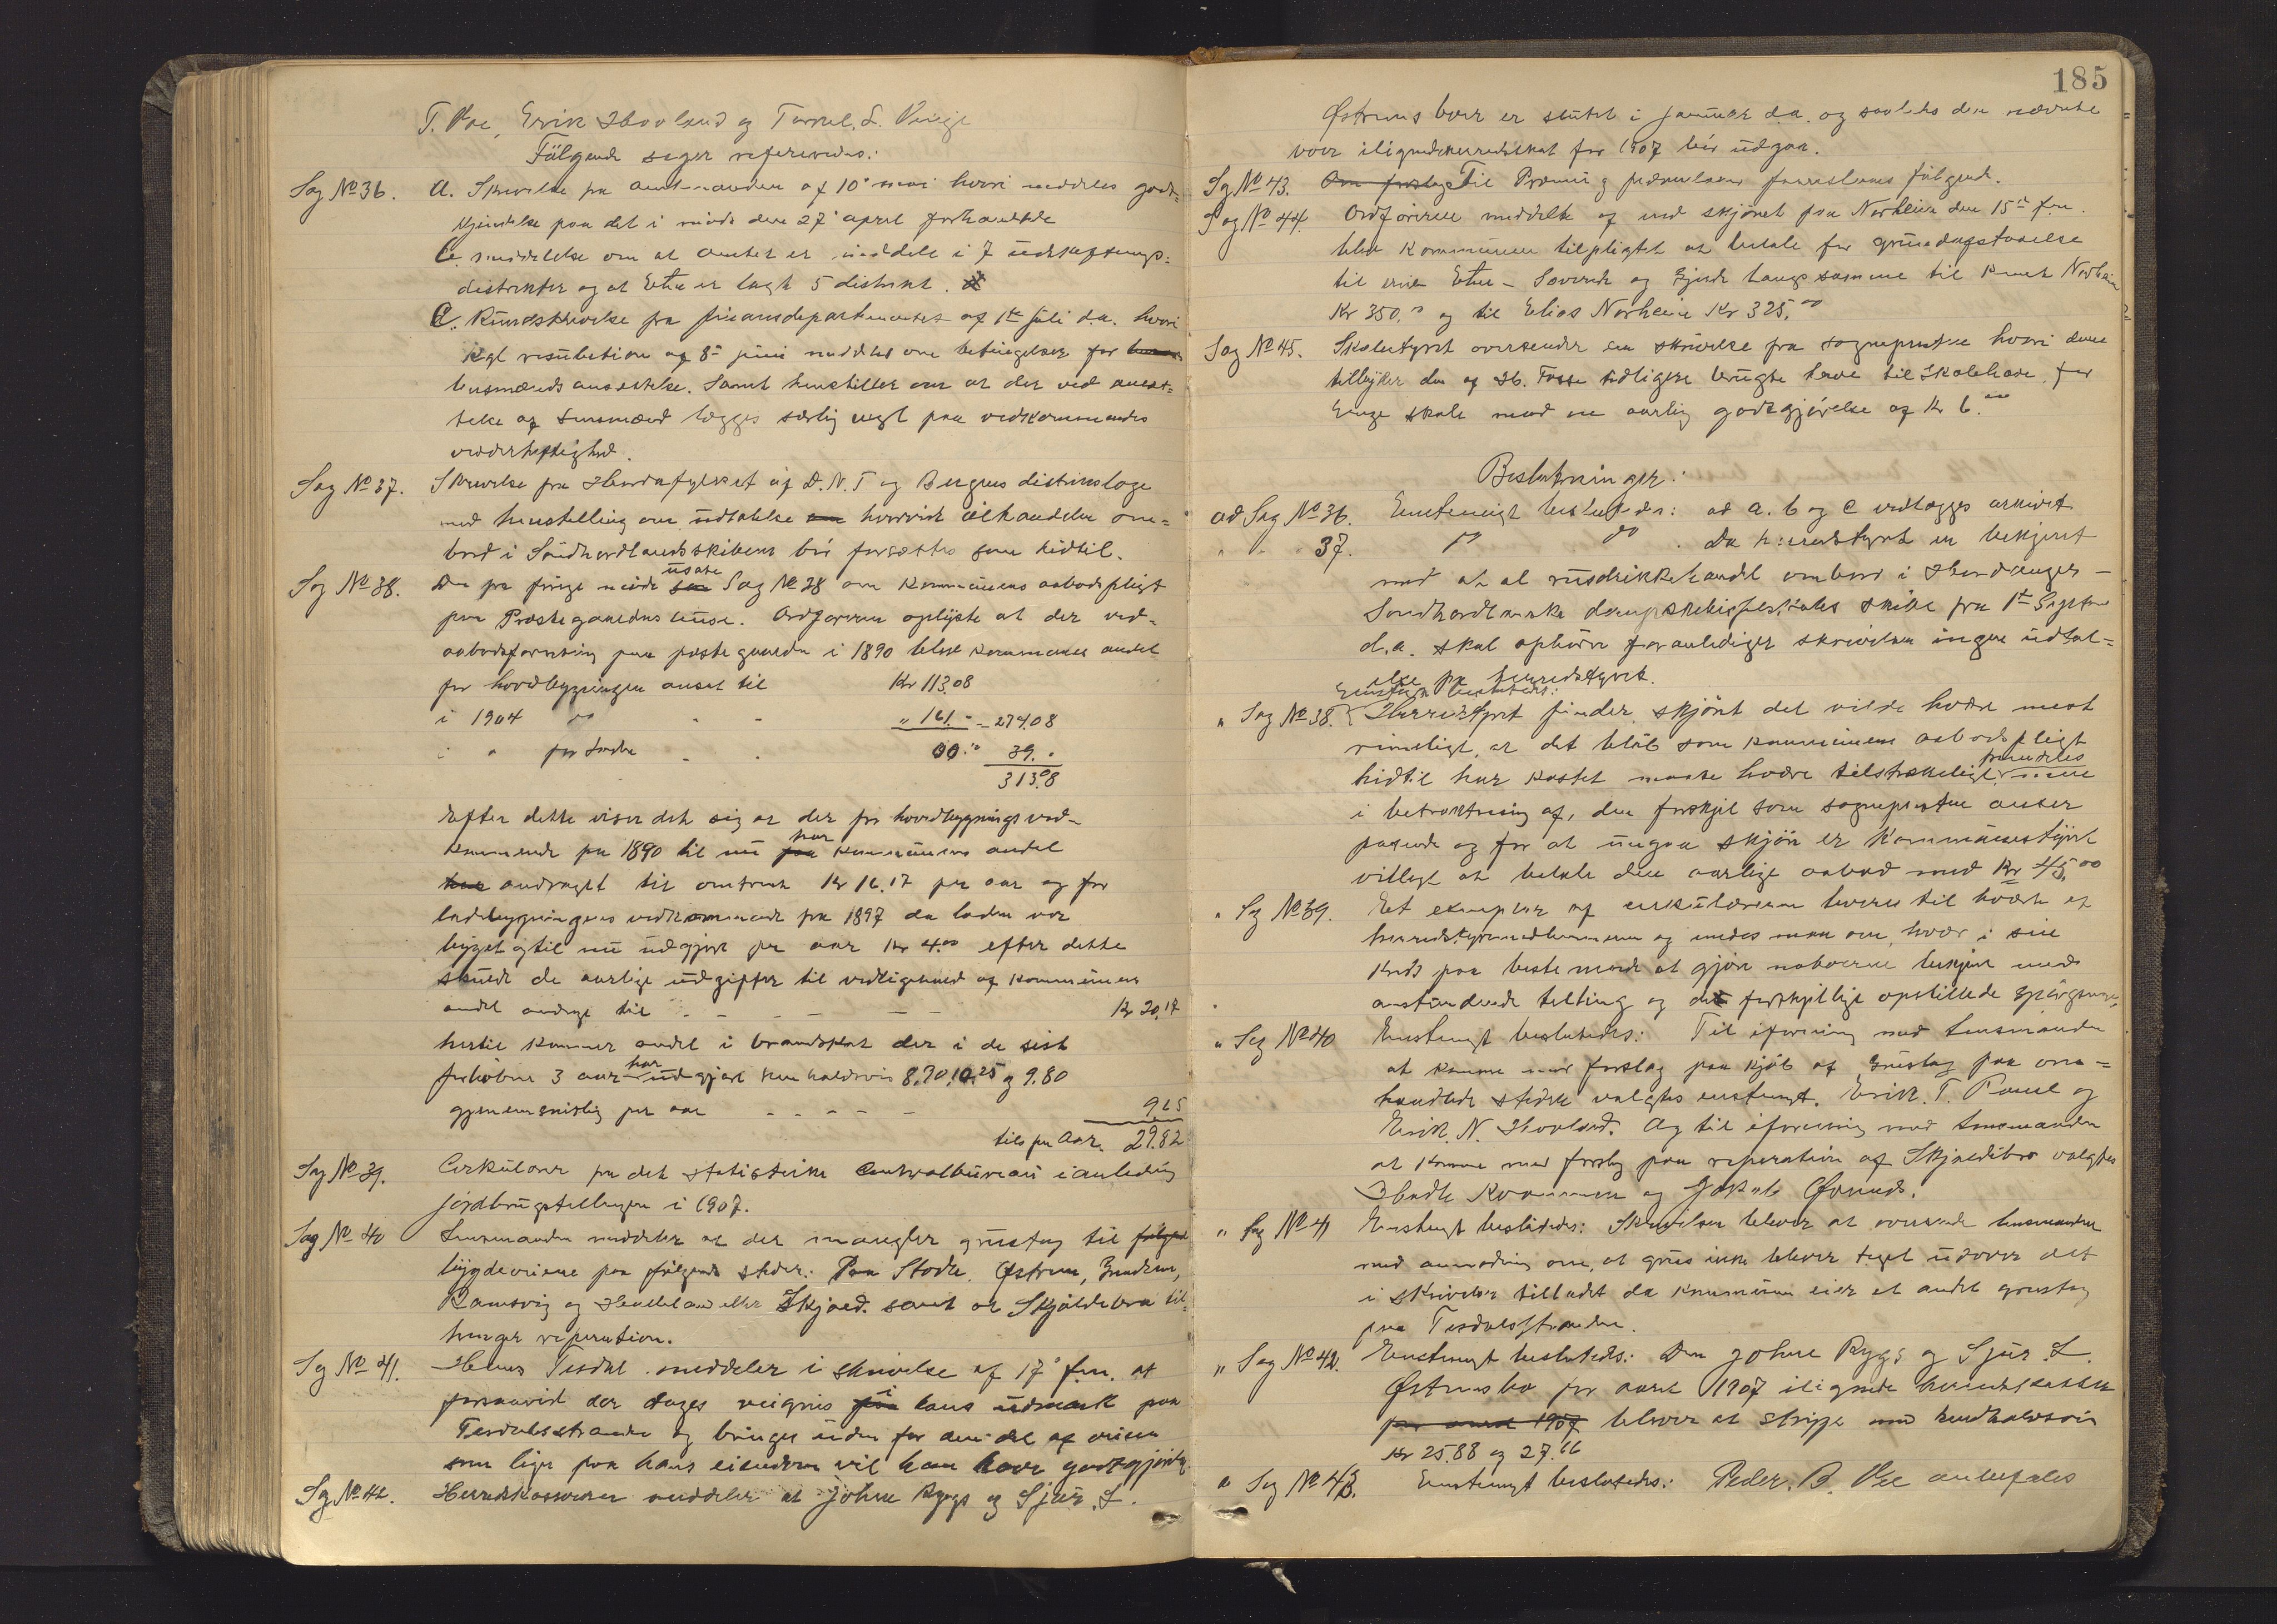 T. Vae, Erik Hovland og Torkel. S. Vinje
Følgende sager refereredes:
Sag No 36. a. Skrivelse fra amtmanden af 10' mai hvori meddeles god-
kjendelse paa det i møde den 27' april forhandlede
b. meddelelse om at amtet er inddelt i 7 udskiftnings-
distrikter og at Etne er lagt 5 distrikt.
C. Rundskrivelse fra finansdepartementet af 1ste juli d.a. hvori
kgl resolution af 8' juni meddeles om betingelser for
lensmænds ansættelse. Samt henstiller om at der ved ansæt-
telse af lensmænd lægges særlig vegt paa vedkommendes
vederheftighed.
Sag No 37. Skrivelse fra Hordafylket af D.N.T og Bergens distriktsloge
med henstilling om udtalelse hvorvidt ølhandelen om-
bord i Søndhordlandsskibene bør forsættes som hidtil.
Sag No 38. Den fra forrige møde udsatte Sag No 28 om kommunens aabodspligt
paa Præstegaardens huse. Ordføreren oplyste at der ved
aabodsforretning paa præstegaarden i 1890 blev kommunens andel
for hovedbygningen ansat til Kr 113.08
i 1904 do - - " 161. - = 274.08
i " for Laden - - 39.
313.08
Efter dette viser det sig at der for hovedbygnings ved-
kommende fra 1890 til nu har kommunens andel
andraget til omtrent Kr 16.17 pr aar og for
ladebygningens vedkommende fra 1897 da laden var
bygget og til nu udgjort pr aar Kr 4.00 efter dette
skulde de aarlige udgifter til vedligehold af kommunens
andel andrage til - - - - - Kr 20.17
hertil kommer andel i brandskat der i de sist
forløbne 3 aar har udgjort henholdsvis 8.90, 10.25 og 9.80
gjennemsnitlig pr aar - - - - - 9.65
tils pr Aar. 29.82
Sag No 39. Cirkulære fra det statistiske Centralbureau i anledning
jordbrugstellingen i 1907.
Sag No 40 Lensmanden meddeler at der mangler grustag til
bygdeveiene paa følgende steder: Paa Stodle, Østrem, Grindem,
Ramsvig og Hetleland eller Skjold. samt at Skjoldebro til-
trænger reperation.
Sag No 41. Hans Tesdal meddeler i skrivelse af 17' f.m. at
forsaavidt der tages veigrus i hans udmark paa
Tesdalsstranden og bringes uden for den del af veien
som liger paa hans eiendom vil han have godtgjørelse
Sag No 42. Herredskassereren meddeler at Johne Rygg og Sjur. L.
185
Østrems bver er sluttet i januar d.a. og saaledes den nævnte
iligned herredsskat for 1907 bør udgaa.
Sag No 43. Til Præmie fremførelsen følgende.
Sag No 44. Ordføreren meddelte at ved skjønet paa Norheim den 15de f.m.
blev kommunen tilpligtet at betale for grundafstaaelse
til veien Etne - Søvereide og gjerde langs samme til Knut Norheim
Kr 350.00 og til Elias Norheim Kr 325.00
Sag No 45. Skolestyret oversender en skrivelse fra sognepresten hvori denne
tilbyder den af Hb. Fosse tidligere brugte have til Skolehave for
Enge skole mod en aarlig godtgjørelse af Kr 6.00
Beslutninger:
ad Sag No 36. Enstemigt besluttedes: ad a. b og c vedlægges arkivet
" " " 37. do do. Da herredstyret er bekjent
med at al rusdrikkehandel ombord i Hardanger -
Søndhordlandske dampskibsselskabs skibe fra 1ste Septbr
d.a. skal ophøre foranlediger skrivelsen ingen udtal-
else fra herredstyret.
Enstem besluttedes:
" Sag No 38. Herredstyret finder skjønt det vilde hvære mest
rimeligt, at det beløb som kommunens aabodspligt
hidtil har kostet maatte hvære tilstrækeligt fremdeles
i betraktning af, den forskjel som sognepresten anser
passende og for at undgaa skjøn er Kommunestyret
villigt at betale den aarlige aabod med Kr 45.00
" Sag No 39. Et exemplar af cirkulæreren leveres til hvært af
herredstyremedlemmerne og enedes man om, hver i sin
Kreds paa beste maade at gjøre naboerne bekjent med
anstundende telling og de forskjellige opstillede spørgsmaal
" Sag No 40 Enstemigt besluttedes: Til i forening med Lensmanden
at komme med forslag paa kjøb af Grustag paa om-
handlede steder valgtes enstemigt. Erik. T. Rame og
Erik. N. Hovland. Og til i forening med lensmanden
at komme med forslag paa reperation af Skjoldebro valgtes
og Jakob Øvrud.
" Sag No 41 Enstemigt besluttedes: Skrivelsen bliver at oversende lensmanden
med anmodning om, at grus ikke bliver taget udover det
i skrivelse tilladet da kommunen eier et andet grustag
paa Tesdalsstranden.
" Sag No 42. Enstemigt besluttedes: Den Johne Rygg og Sjur. L.
Østrembø for aaret 1907 ilignede herredsskatter
for aaret 1907 bliver at strygge med henholdsvis
Kr 25.88 og 27.66
" Sag No 43. Enstemigt besluttedes: Peder. B. Vee anbefales